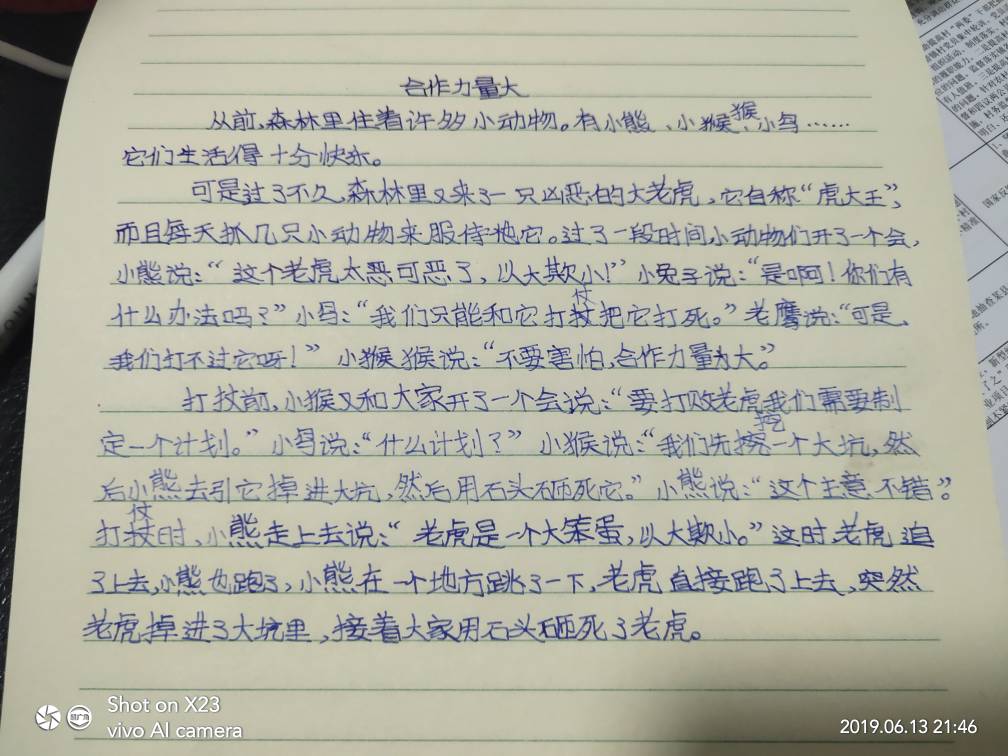 合作力量大
从前,森林里住着许多小动物。有小熊、小猴猴、小鸟……
它们生活得十分快乐。
可是过了不久,森林里又来了一只凶恶的大老虎,它自称“虎大王”,
而且每天抓几只小动物来服侍它。过了一段时间,小动物们开了一个会,
小熊说:“这个老虎太恶可恶了,以大欺小!”小兔子说:“是啊!你们有
什么办法吗?”小鸟:“我们只能和它打仗把它打死。”老鹰说:“可是,
我们打不过它呀!”小猴猴说:“不要害怕,合作力量为大。”
打仗前,小猴又和大家开了一个会说:“要打败老虎我们需要制
定一个计划。”小鸟说:“什么计划?”小猴说:“我们先挖一个大坑,然
后小熊去引它掉进大坑,然后用石头砸死它。”小熊说:“这个主意不错”。
打仗时,小熊走上去说:“老虎是一个大笨蛋,以大欺小。”这时,老虎追
了上去,小熊也跑了,小熊在一个地方跳了一下,老虎直接跑了上去,突然
老虎掉进了大坑里,接着大家用石头砸死了老虎。
Shot on X23
vivo AI camera
2019.06.13 21:46